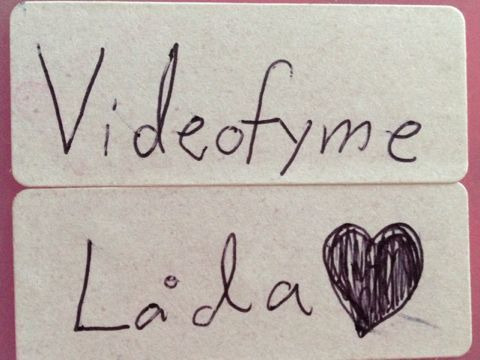 Videofyme
Låda ♥